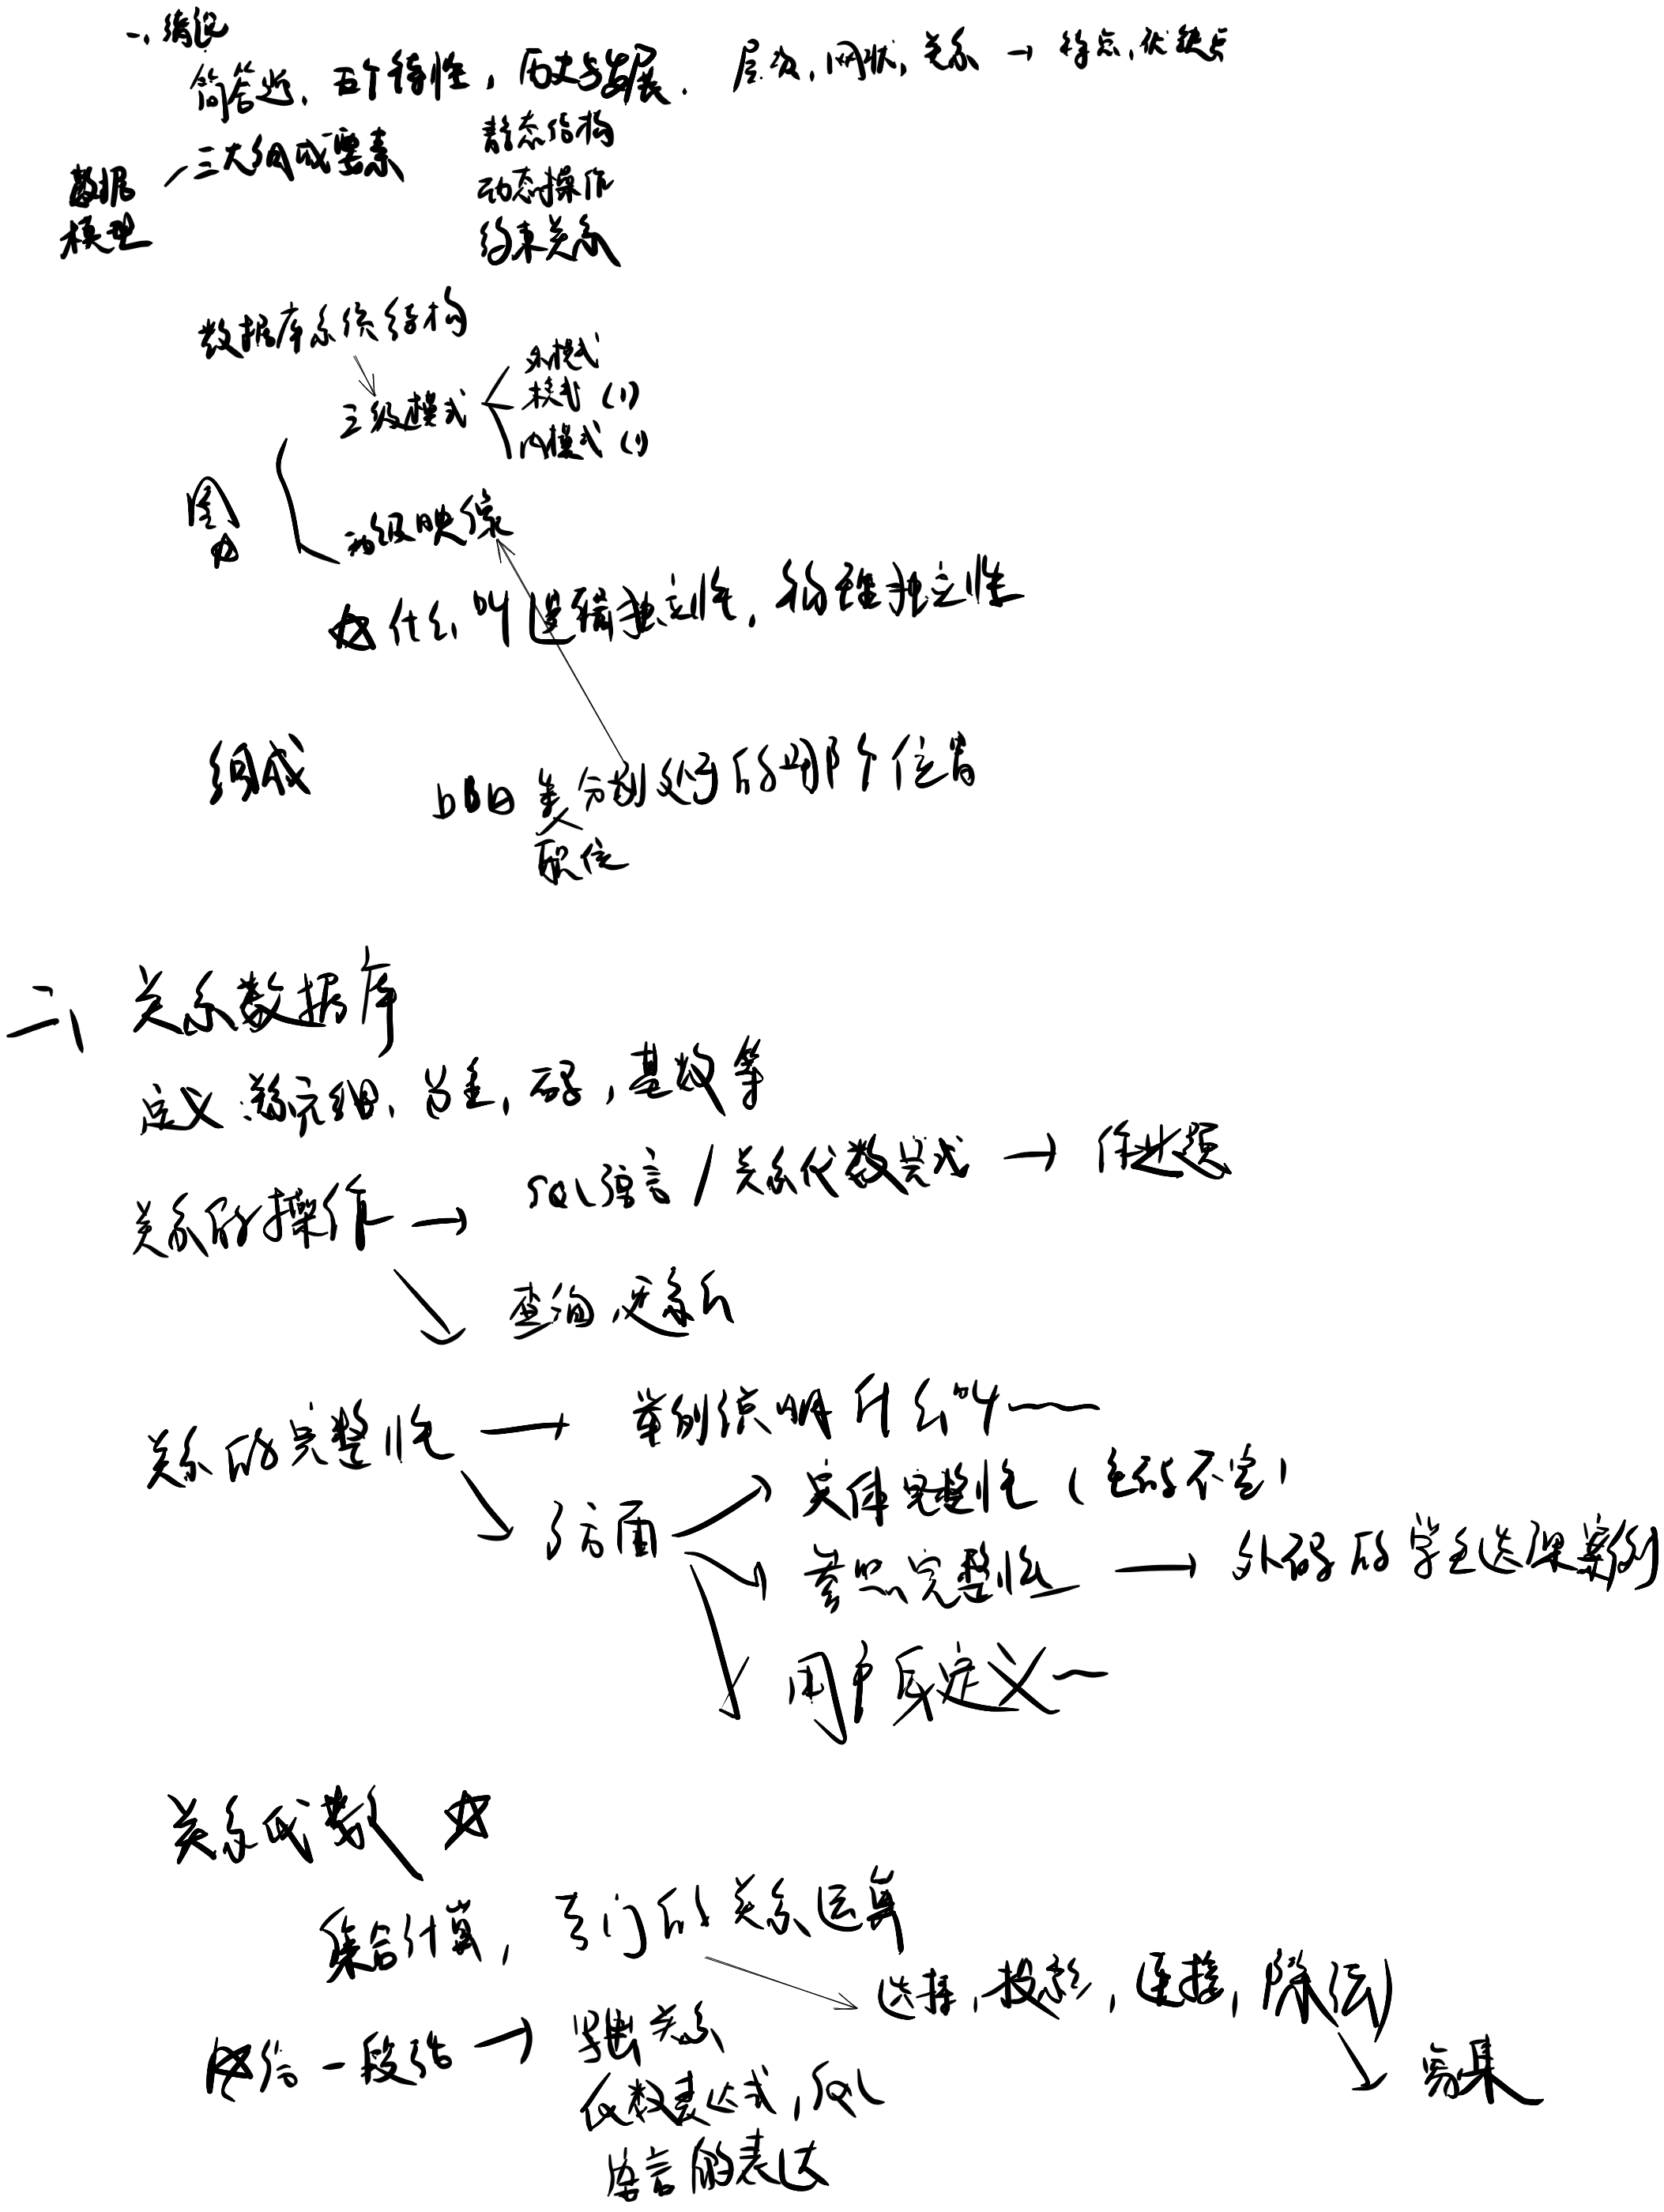 一、绪论
简答题，五个特性，历史与发展，层次，网状，关系 → 特点，优缺点
数据模型
三大组成要素
静态结构
动态操作
约束关系
数据库系统结构
三级模式
外模式
模式 (1)
内模式 (1)
图
二级映像
什么叫逻辑独立性，物理独立性
组成
DBA 类分别处于的哪个位置
职位
二、关系数据库
定义：元组，码，基数等
关系的操作 →
SQL语言 / 关系代数 →
查询，
关系的完整性 → 举例说明什么叫~
3方面
实体完整性（主码不空）
参照完整性 → 外码的学生选课案例
用户自定义~
关系代数
集合计算，专门的关系运算
选择，投影，连接，除运
象集
给一段话 → 写出关系
代数表达式，SQL
语言的表达